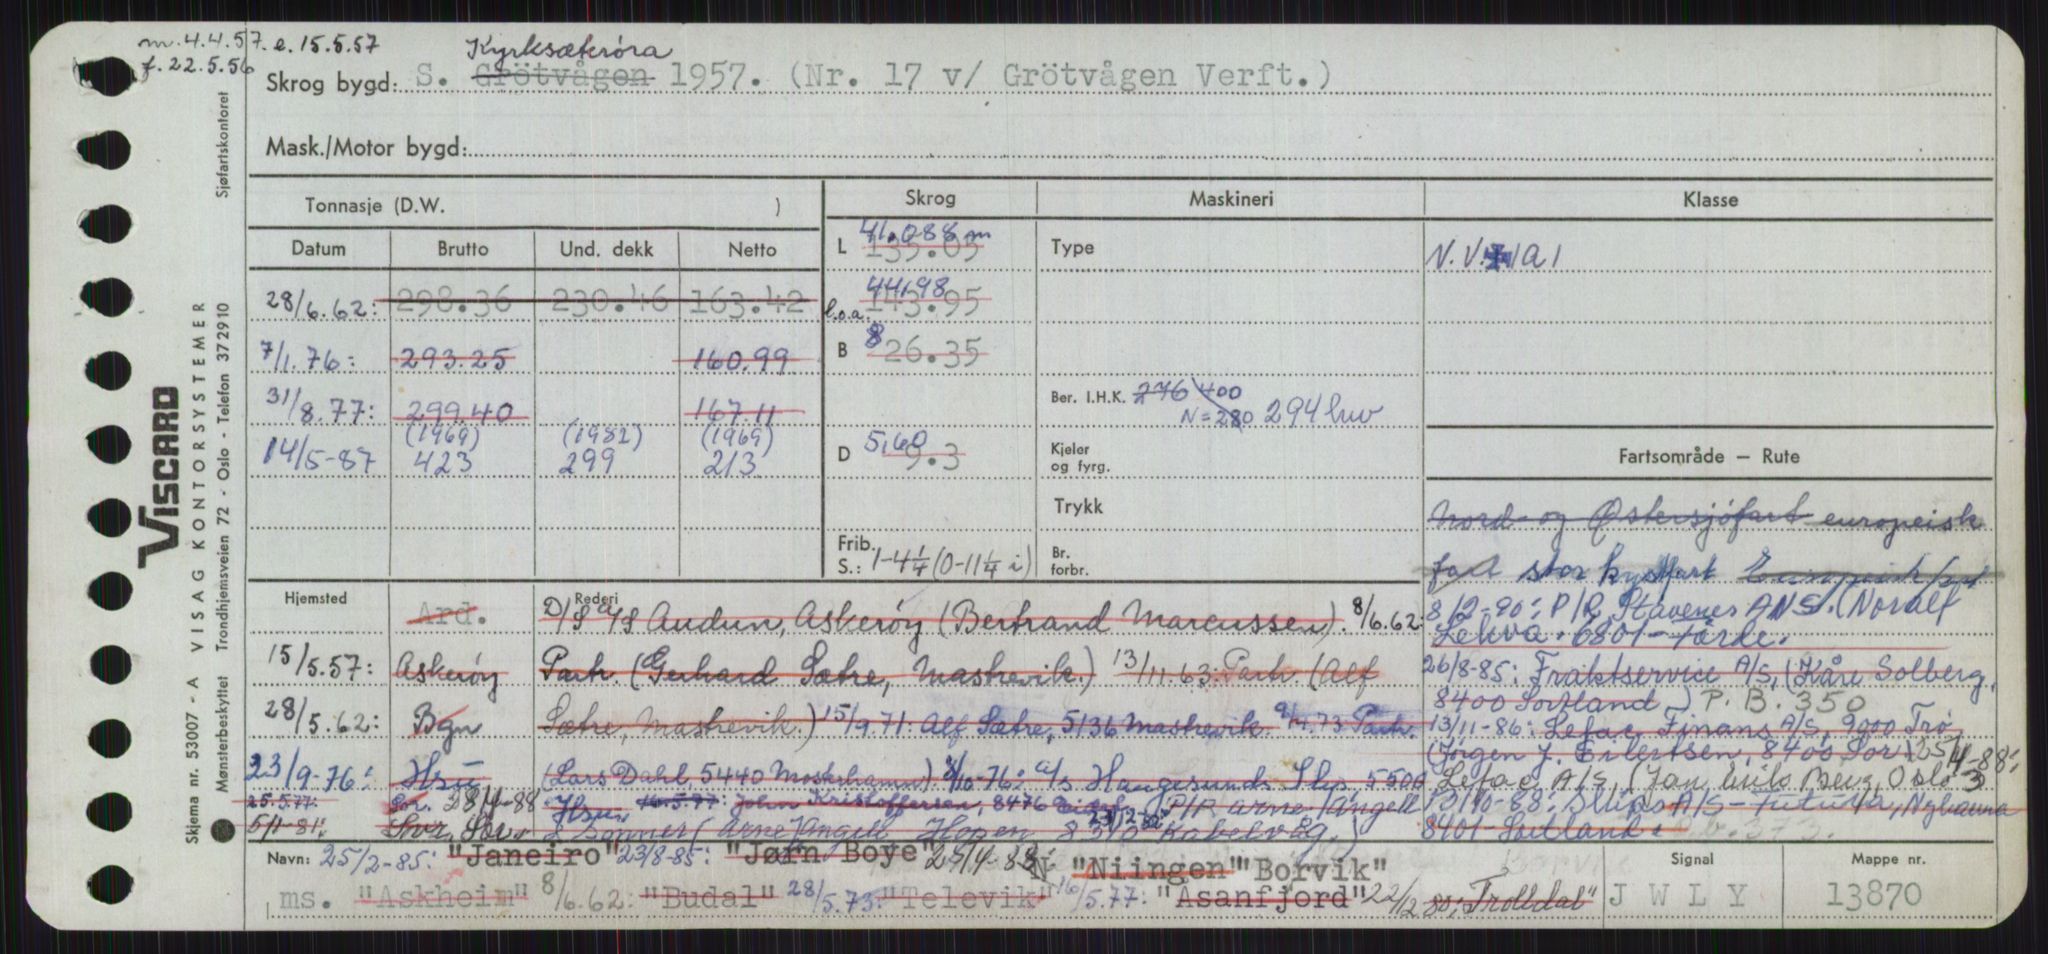 m. 4.4.57. e. 15.5.57
f. 22.5.56
Kyrksæterøra
Skrog bygd: S. Grötvågen 1957. (Nr. 17 v/ Grötvågen Verft.)
Mask./Motor bygd:
Tonnasje (D.W. )
Skrog
Maskineri
Klasse
Datum Brutto Und. dekk Netto
28/6.62: 298.36 230.46 163.42
7/1.76: 293.25 160.99
31/8.77: 299.40 167.11
(1969) (1982) (1969)
14/5-87 423 299 213
L 41.088 m 135.05
l.o.a. 44.98 143.95
B 8 26.35
D 5,60 9.3
Frib. S.: 1-4¼ (0-11¼ i)
Type
Ber. I.H.K. 276 400
N=280 294 hw
Kjeler og fyrg.
Trykk
Br. forbr.
N.V.✠1A1
Fartsområde — Rute
Nord- og Østersjöfart europeisk
fart stor kystfart Europeisk fart
Hjemsted
Rederi
Ard. D/S A/S Audun, Askerøy (Bertrand Marcussen). 8/6.62:
15/5.57: Askerøy Partr. (Gerhard Sætre, Mastrevik.) 13/11.63: Partr. (Alf
28/5.62: Bgn Sætre, Mastrevik.) 15/9.71: Alf Sætre, 5136 Mastrevik. 9/4.73 Partr.
23/9-76: Hsu (Lars Dahl, 5440 Mosterhamn) 8/10-76: A/S Haugesunds Slip, 5500
25.5.77: Sor. 28/4-88 Hsu. 16.5.77: John Kristoffersen, 8476 P/R Arne Angell
5/1-81: Svr. Sor. & Sønner (Arne Angell Hopen 8310 Kabelvåg.)
8/2-90: P/R Stavenes ANS. (Noralf
Lekva. 6801-Førde.
26/8-85: Fraktservice A/S, (Kåre Solberg,
8400 Sortland) P.B. 350
13/11-86: Lefac Finans A/S, 9000 Trø
(Jørgen J. Eilertsen, 8400 Sor) 25/4-88:
Lefac A/S, (Jan Nils Berg, Oslo 3
13/10-88: Skips A/S - Futura, Nyhavna
8401-Sortland. P.b. 373.
Navn: 25/2-85: "Janeiro" 23/8-85: "Jørn Boye" 25/4-88: N "Niingen" "Borvik"
ms. "Askheim" 8/6.62: "Budal" 28/5.73: "Televik" 16/5.77: "Asanfjord" 22/12 80: "Trolldal"
Signal
J W L Y
Mappe nr.
13870
Skjema nr. 53007 - A VISAG KONTORSYSTEMER
Mønsterbeskyttet Trondhjemsveien 72 - Oslo - Telefon 372910
Sjøfartskontoret
VISCARD